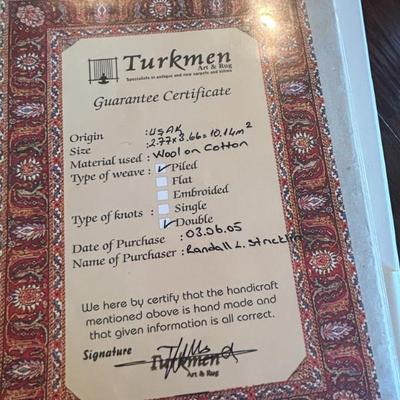 Turkmen
Art & Rug
Specialists in antique and new carpets and kilims
Guarantee Certificate
Origin : USAK
Size : 2.77x3.66=10.14m²
Material used : Wool on Cotton
Type of weave : Piled
Flat
Embroided
Type of knots : Single
Double
Date of Purchase : 03.06.05
Name of Purchaser : Randall L.
We here by certify that the handicraft
mentioned above is hand made and
that given information is all correct.
Signature
Turkmen
Art & Rug